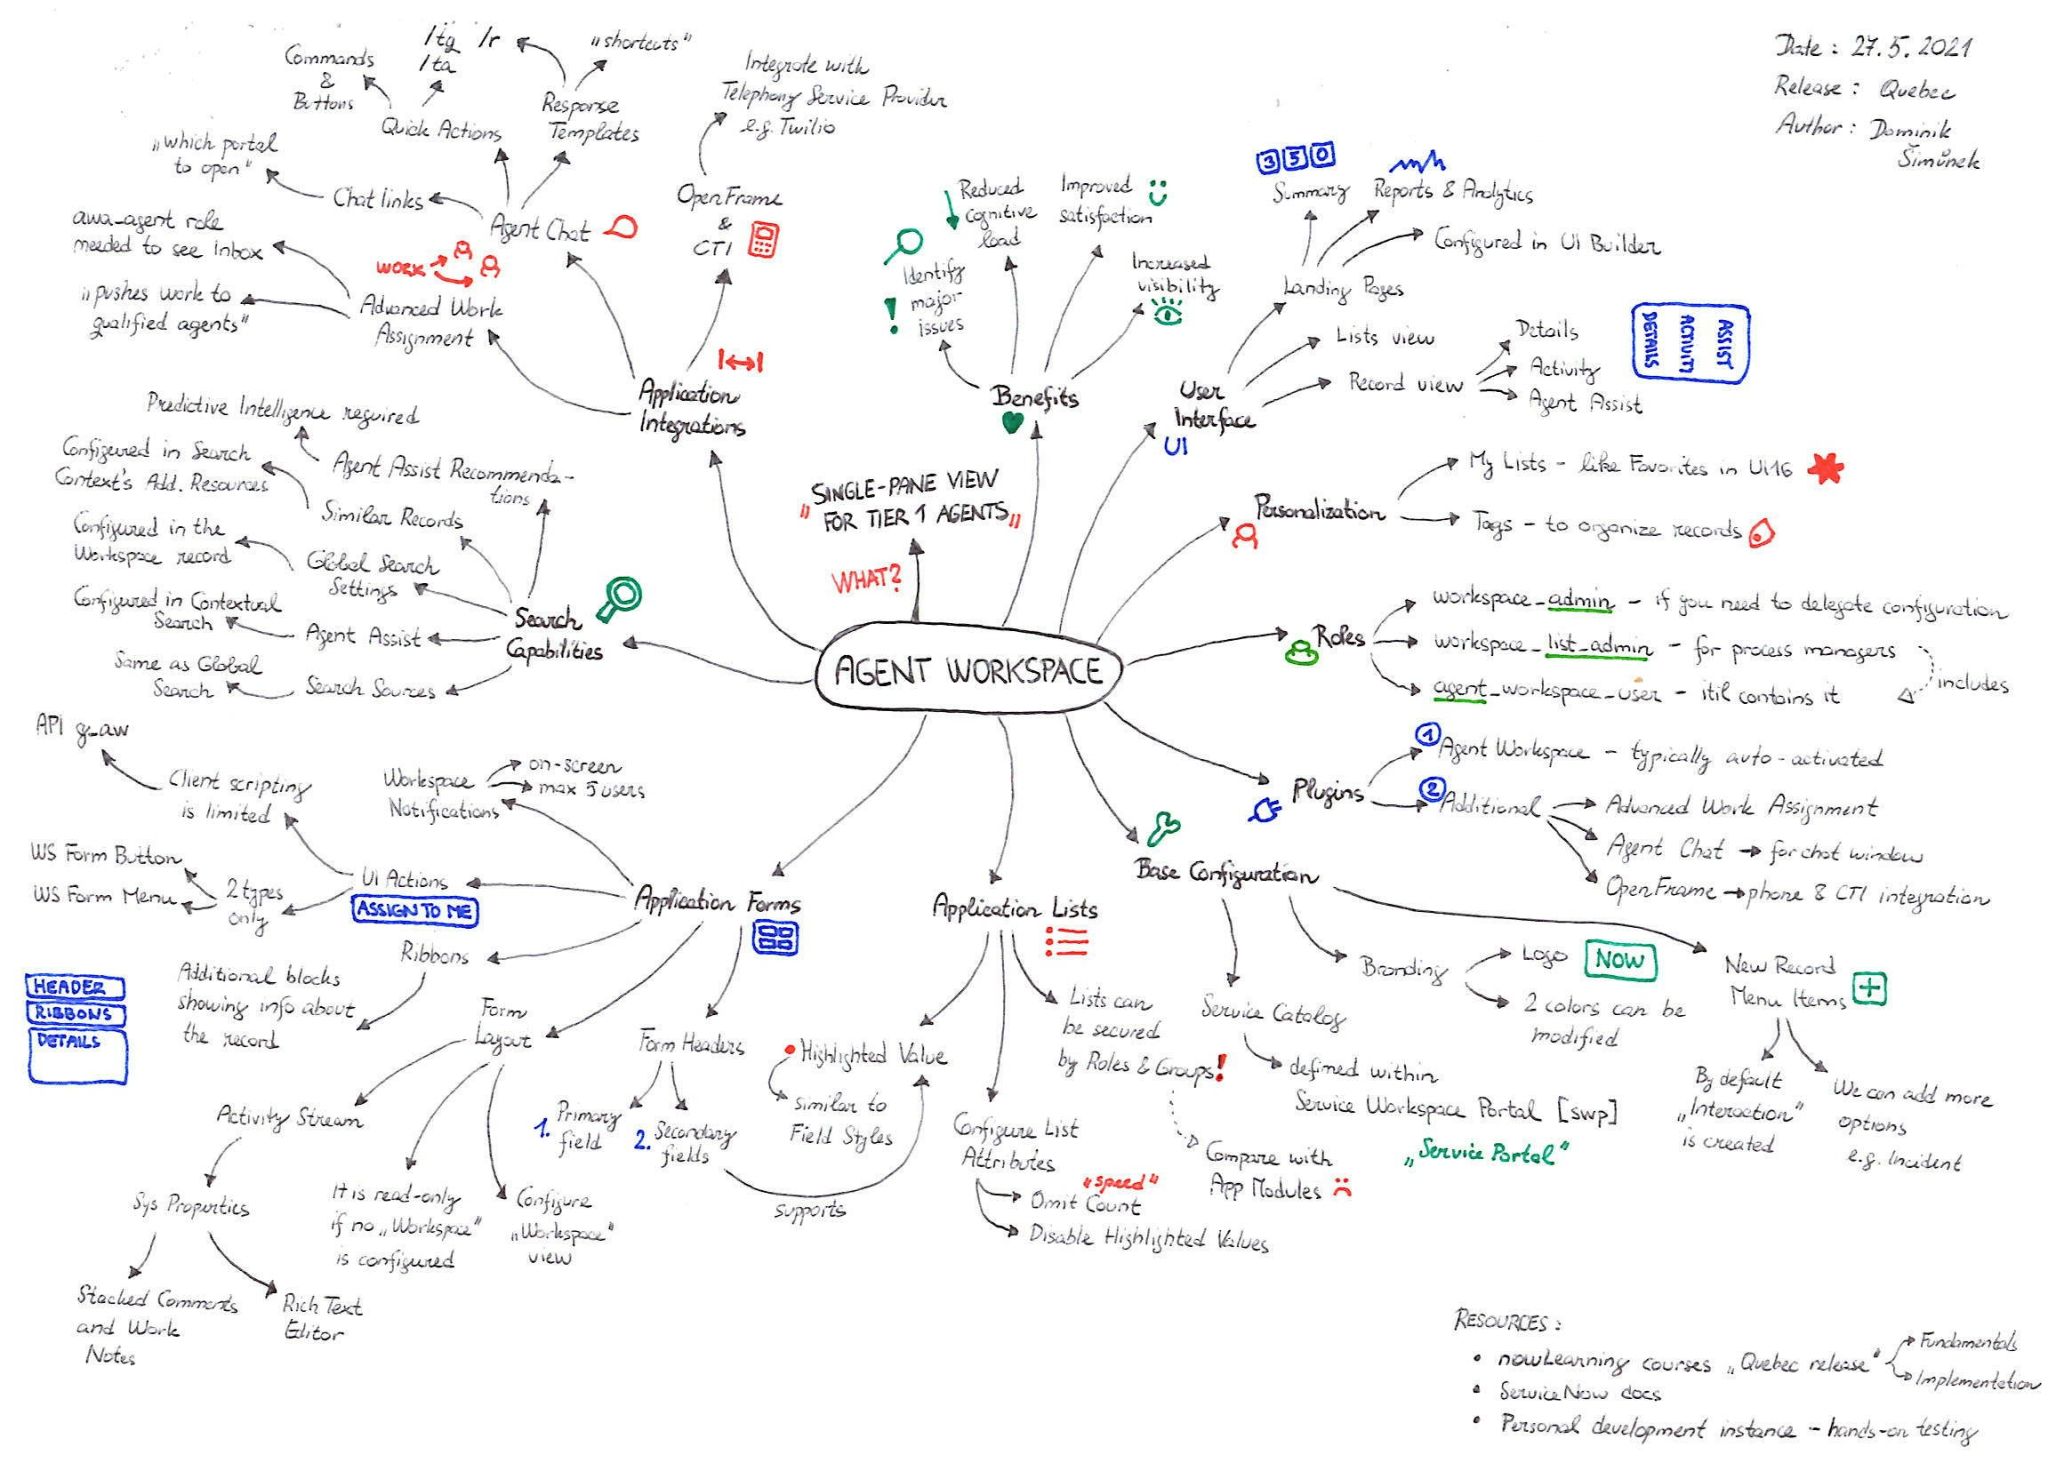 Date : 27.5.2021
Release : Quebec
Author : Dominik
Šimůnek
AGENT WORKSPACE
WHAT?
"SINGLE-PANE VIEW
FOR TIER 1 AGENTS"
Application
Integrations
Agent Chat
Quick Actions
Commands
&
Buttons
/tg /r
/ta
Response
Templates
„shortcuts"
Chat links
„which portal
to open"
Advanced Work
Assignment
WORK
awa_agent role
needed to see Inbox
„pushes work to
qualified agents"
OpenFrame
&
CTI
Integrate with
Telephony Service Provider
e.g. Twilio
Benefits
Identify
major
issues
Reduced
cognitive
load
Improved
satisfaction
Increased
visibility
User
Interface
UI
Landing Pages
350
Summary
Reports & Analytics
Configured in UI Builder
Lists view
Record view
Details
Activity
Agent Assist
DETAILS
ACTIVITY
ASSIST
Personalization
My Lists - like Favorites in UI16
Tags - to organize records
Roles
workspace_admin - if you need to delegate configuration
workspace_list_admin - for process managers
agent_workspace_user - itil contains it
includes
Plugins
1 Agent Workspace - typically auto-activated
2 Additional
Advanced Work Assignment
Agent Chat → for chat window
OpenFrame → phone & CTI integration
Base Configuration
Service Catalog
defined within
Service Workspace Portal [swp]
„Service Portal"
Branding
Logo
NOW
2 colors can be
modified
New Record
Menu Items
By default
„Interaction"
is created
We can add more
options
e.g. Incident
Application Lists
Lists can
be secured
by Roles & Groups!
Compare with
App Modules
Configure List
Attributes
„speed"
Omit Count
Disable Highlighted Values
Highlighted Value
similar to
Field Styles
Application Forms
Workspace
Notifications
on-screen
max 5 users
UI Actions
ASSIGN TO ME
Client scripting
is limited
API g_aw
2 types
only
WS Form Button
WS Form Menu
Ribbons
Additional blocks
showing info about
the record
HEADER
RIBBONS
DETAILS
Form
Layout
Activity Stream
Sys Properties
Stacked Comments
and Work
Notes
Rich Text
Editor
It is read-only
if no „Workspace"
is configured
Configure
„Workspace"
view
Form Headers
1. Primary
field
2. Secondary
fields
supports
Search
Capabilities
Agent Assist Recommenda-
tions
Predictive Intelligence required
Similar Records
Configured in Search
Context's Add. Resources
Global Search
Settings
Configured in the
Workspace record
Agent Assist
Configured in Contextual
Search
Search Sources
Same as Global
Search
RESOURCES :
• nowLearning courses „Quebec release"
Fundamentals
Implementation
• ServiceNow docs
• Personal development instance - hands-on testing